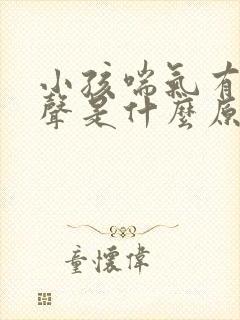 小孩喘氣有
聲是什麼原
童懷偉